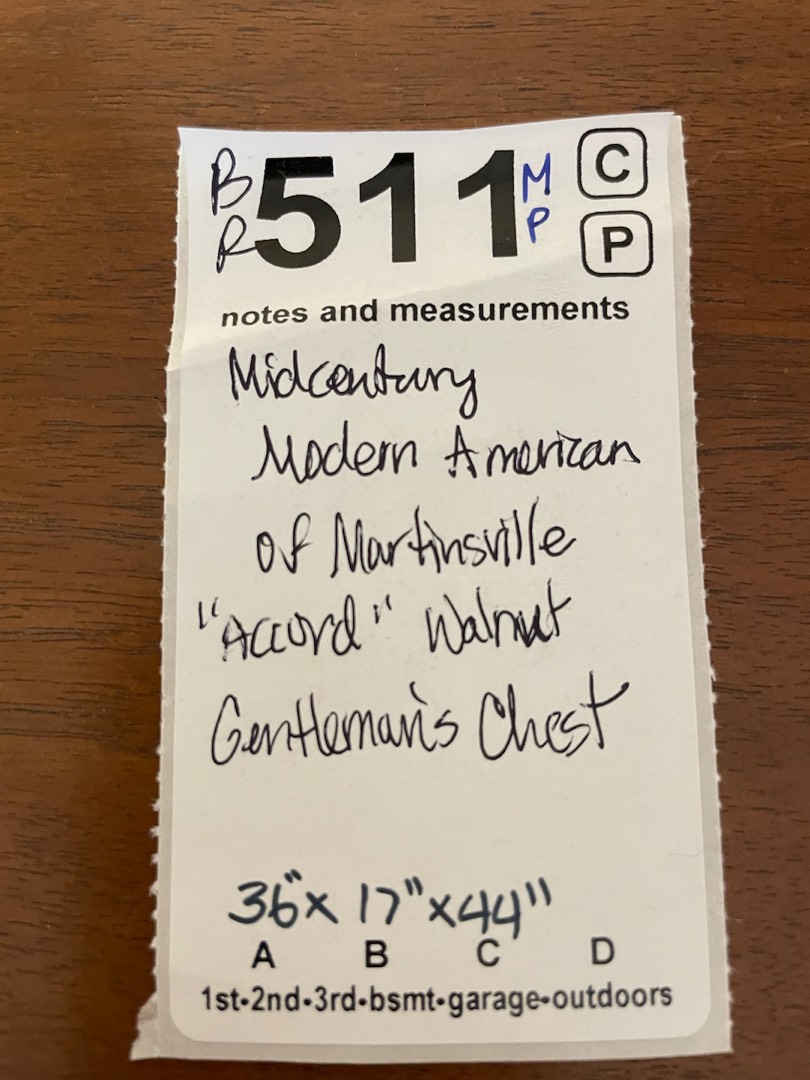 B 511 M C
R P P
notes and measurements
Midcentury
Modern American
of Martinsville
"Accord" Walnut
Gentleman's Chest
36" x 17" x 44"
A B C D
1st•2nd•3rd•bsmt•garage•outdoors